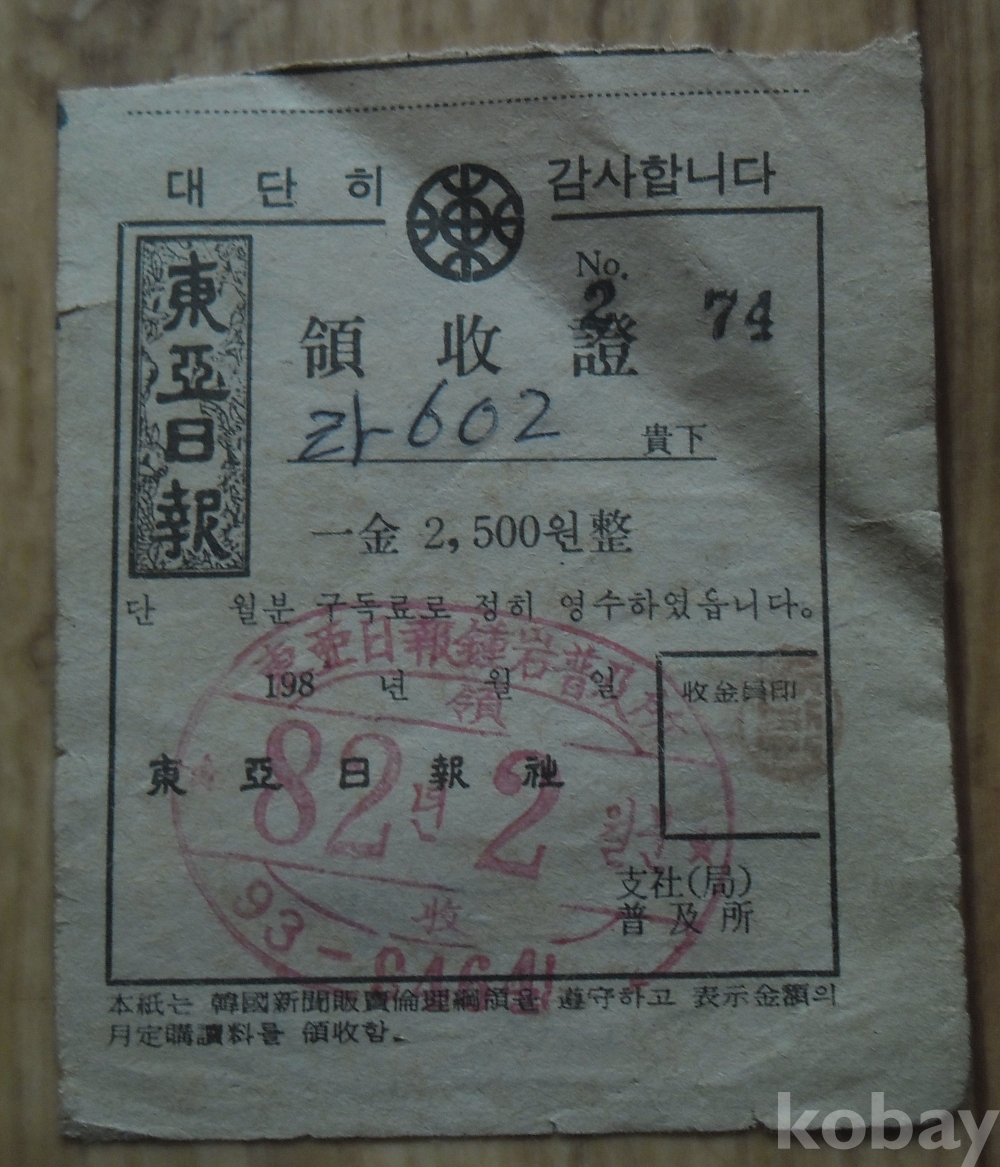 대단히 감사합니다
東亞日報
No.
2 74
領收證
라602 貴下
一金 2,500원整
단 월분 구독료로 정히 영수하였읍니다。
東亞日報鍾岩普及所
198 년 월 일
收金員印
領
東亞日報社
82년 2월분
支社(局)
普及所
收
93-
本紙는 韓國新聞販賣倫理綱領을 遵守하고 表示金額의
月定購讀料를 領收함.
kobay